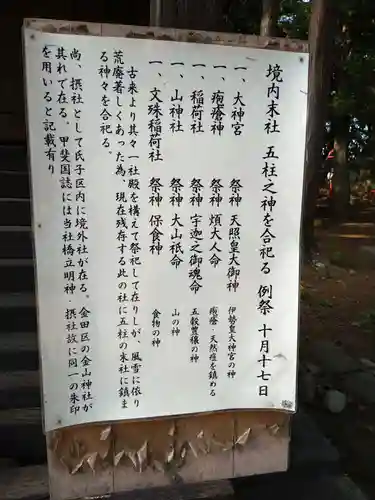 境内末社 五柱之神を合祀る 例祭 十月十七日
一、大神宮 祭神 天照皇大御神 伊勢皇大神宮の神
一、疱瘡神 祭神 煩大人命 疱瘡・天然痘を鎮める
一、稲荷社 祭神 宇迦之御魂命 五穀豊穣の神
一、山神社 祭神 大山祇命 山の神
一、文殊稲荷社 祭神 保食神 食物の神
古来より其々一社殿を構えて祭祀して在りしが、風雪に依り
荒廃著しくあった為、現在残存する此の社に五柱の末社に鎮ま
る神々を合祀る。
尚、摂社として氏子区内に境外社が在る。金田区の金山神社が
其れで在る。甲斐国誌には当社橋立明神・摂社故に同一の朱印
を用いると記載有り